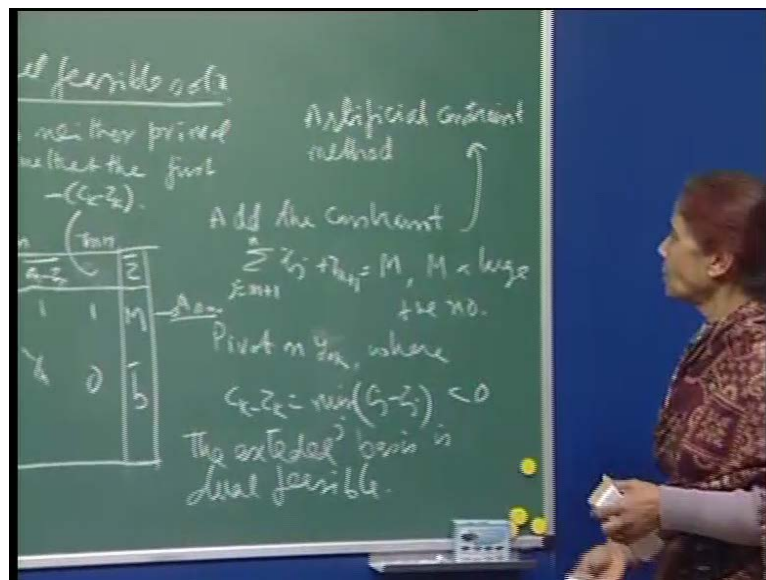 feasible soln
neither primal
the first
-(Cₖ-Zₖ).
Z̄
1 1 M
0 b̄
Artificial constraint
method
Add the constraint
n
∑ xⱼ + xₙ₊₁ = M, M a large
j=m+1
+ve no.
Pivot on y₀ₖ, where
Cₖ-Zₖ = min(Cⱼ-Zⱼ) < 0
The extended basis is
dual feasible.